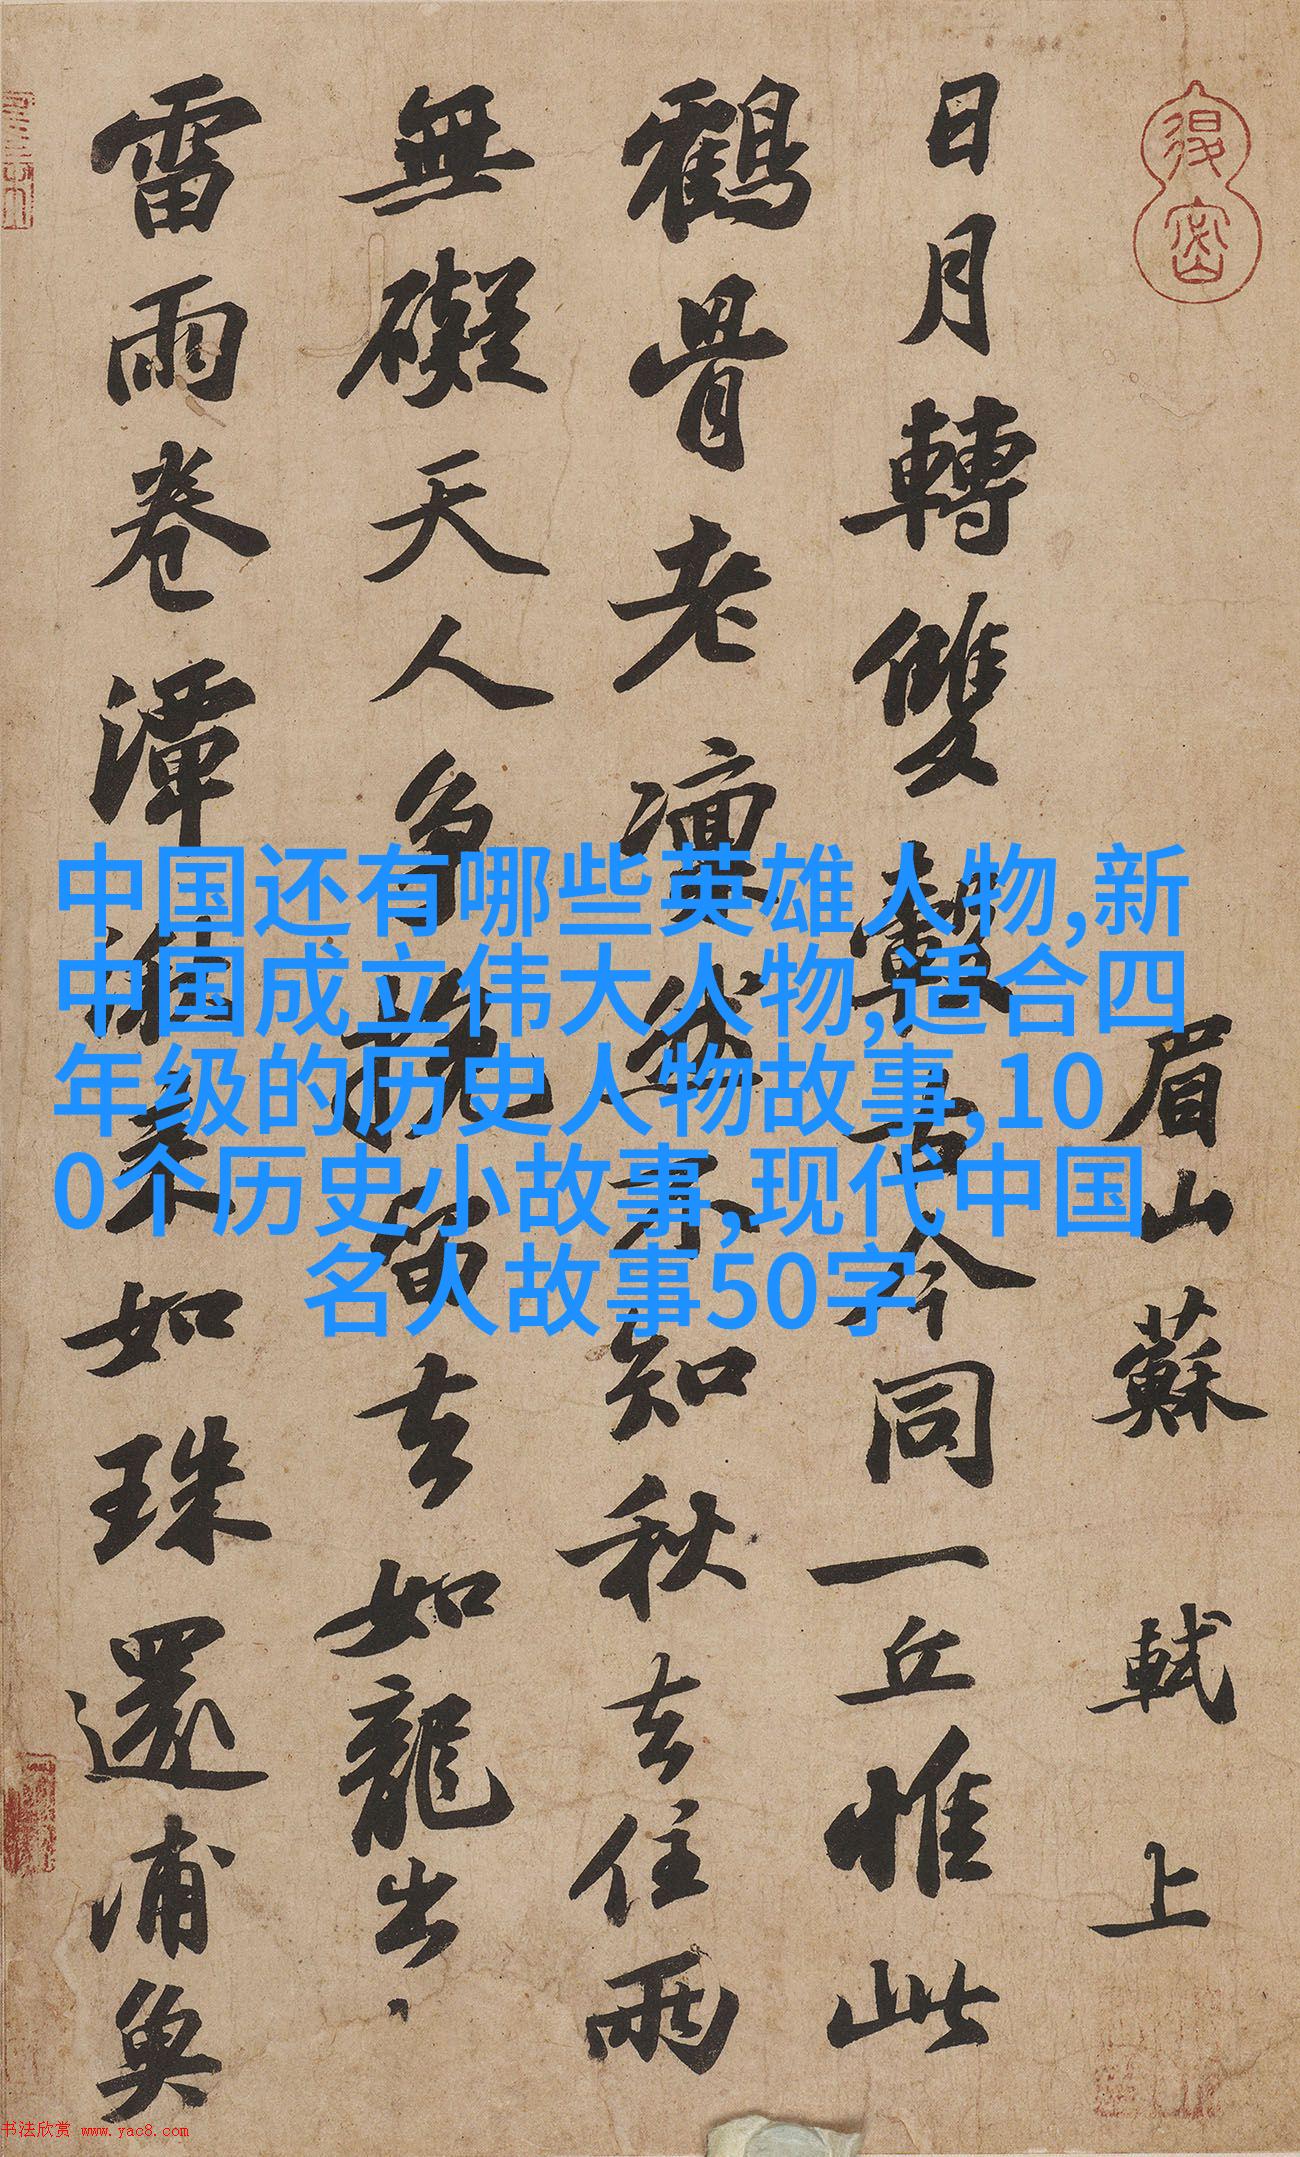 眉山蘇 軾 上
日月轉雙轂古今同一丘惟此
鶴骨老凜然不知秋去住兩
無礙天人爭挽留去如龍出
雷雨卷潭湫來如珠還浦魚
中国还有哪些英雄人物,新
中国成立伟大人物,适合四
年级的历史人物故事,10
0个历史小故事,现代中国
名人故事50字
书法欣赏 www.yac8.com